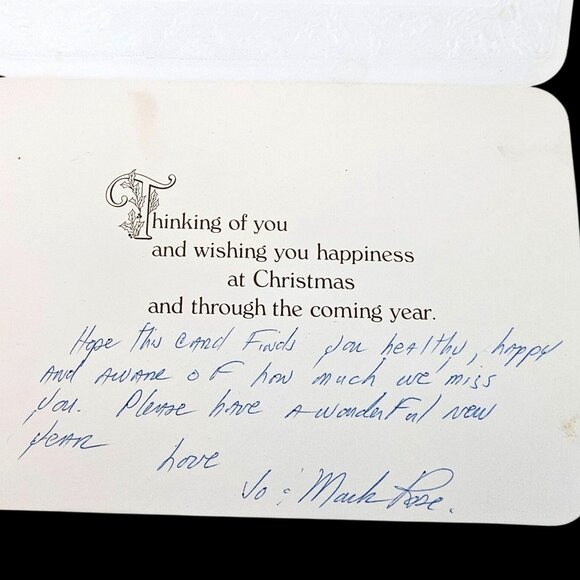 Thinking of you
and wishing you happiness
at Christmas
and through the coming year.
Hope this card Finds you healthy, happy
AND AWARE OF how much we miss
you. Please have a wonderful new
year
Love
Jo & Mark Rose.